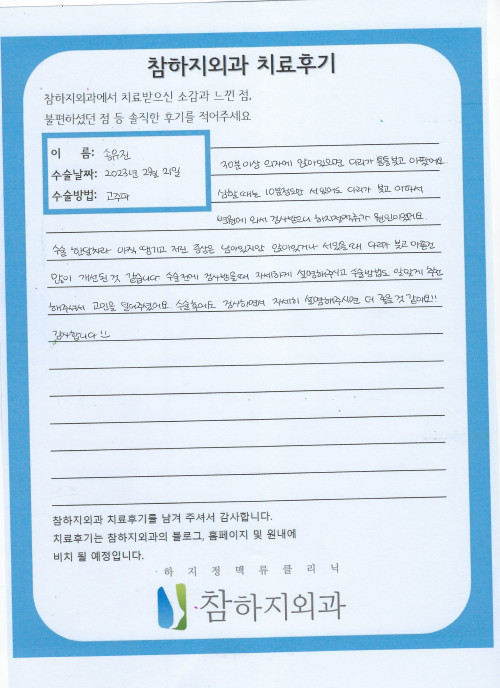 참하지외과 치료후기
참하지외과에서 치료받으신 소감과 느낀 점,
불편하셨던 점 등 솔직한 후기를 적어주세요
이 름: 송유진
수술날짜: 2023년 2월 21일
수술방법: 고주파
30분이상 의자에 앉아있으면 다리가 퉁퉁붓고 아팠어요.
심할 때는 10분정도만 서있어도 다리가 붓고 아파서
병원에 와서 검사받으니 하지정맥류가 원인이었어요.
수술 한달차라 아직 땡기고 저린 증상은 남아있지만 앉아있거나 서있을때 다리가 붓고 아픈건
많이 개선된것 같습니다 수술전에 검사받을때 자세하게 설명해주시고 수술방법도 알맞게 추천
해주셔서 고민을 덜어주셨어요. 수술후에도 검사하면서 자세히 설명해주시면 더 좋을것 같아요!!
감사합니다!!
참하지외과 치료후기를 남겨 주셔서 감사합니다.
치료후기는 참하지외과의 블로그, 홈페이지 및 원내에
비치 될 예정입니다.
하지정맥류클리닉
참하지외과